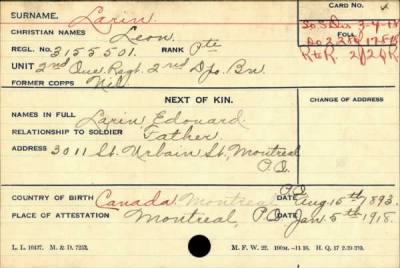 SURNAME. Larin. CARD NO.
CHRISTIAN NAMES Leon.
REGL. NO. 3155501. RANK Pte
FOLL.
UNIT 2nd Que. Regt. 2nd Dpo. Bn
FORMER CORPS Nil
NEXT OF KIN.
CHANGE OF ADDRESS
NAMES IN FULL Larin Edouard.
RELATIONSHIP TO SOLDIER Father.
ADDRESS 3011 St. Urbain St., Montreal
P.Q.
COUNTRY OF BIRTH Canada Montreal P.Q. DATE Aug. 15th 1893.
PLACE OF ATTESTATION Montreal, P.Q. DATE Jan. 5th 1918.
L. L. 10437. M. & D. 7253. M. F. W. 22.